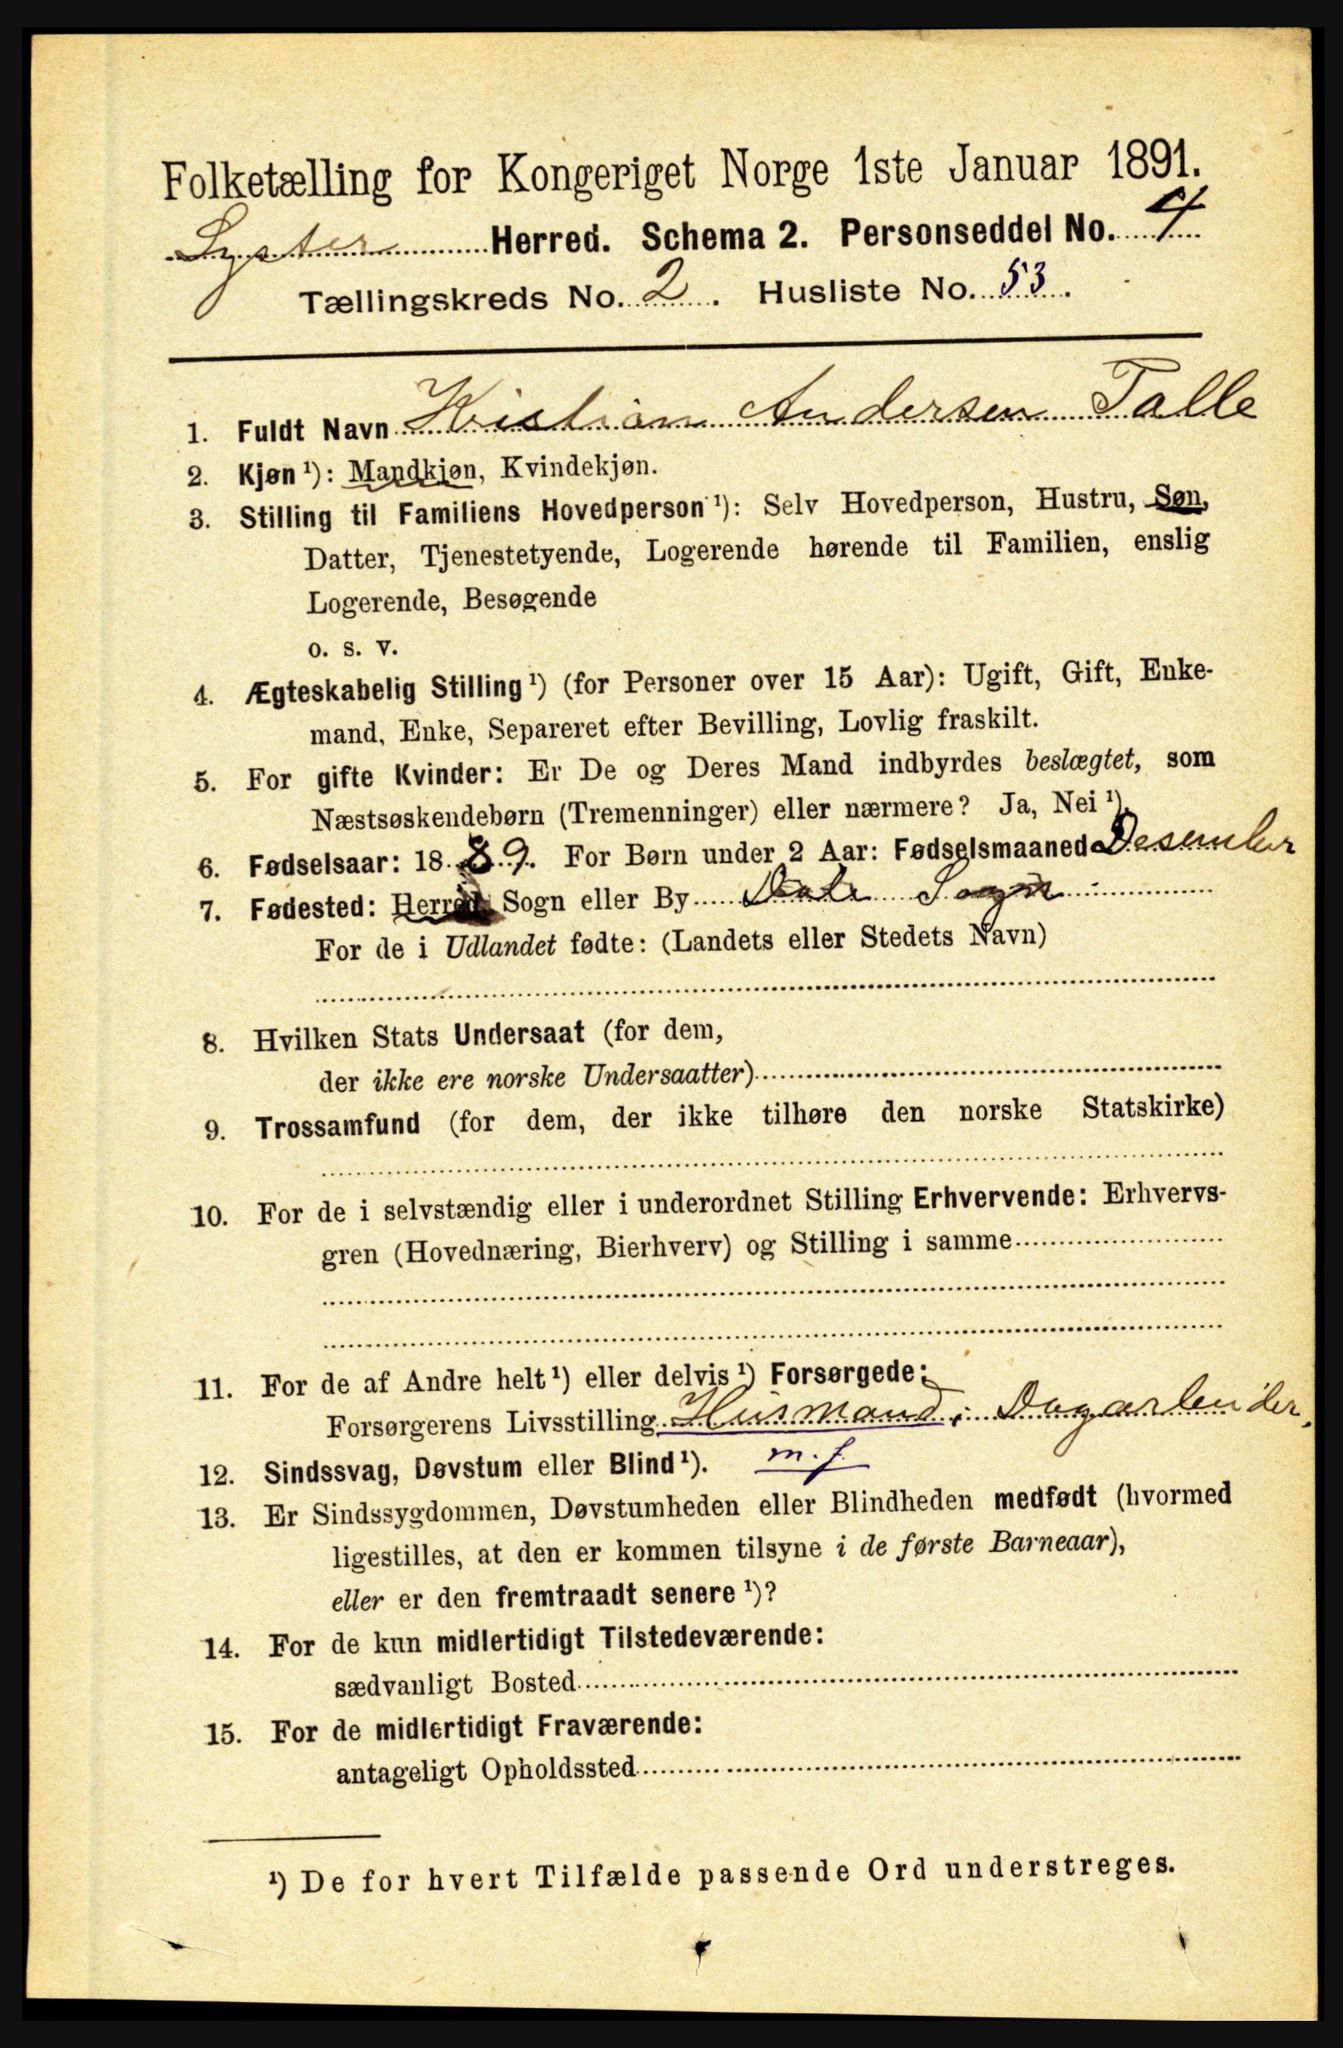 Folketælling for Kongeriget Norge 1ste Januar 1891.
Lyster Herred. Schema 2. Personseddel No. 4
Tællingskreds No. 2. Husliste No. 53.
1. Fuldt Navn Kristian Andersen Talle
2. Kjøn ¹): Mandkjøn, Kvindekjøn.
3. Stilling til Familiens Hovedperson ¹): Selv Hovedperson, Hustru, Søn,
Datter, Tjenestetyende, Logerende hørende til Familien, enslig
Logerende, Besøgende
o. s. v.
4. Ægteskabelig Stilling ¹) (for Personer over 15 Aar): Ugift, Gift, Enke-
mand, Enke, Separeret efter Bevilling, Lovlig fraskilt.
5. For gifte Kvinder: Er De og Deres Mand indbyrdes beslægtet, som
Næstsøskendebørn (Tremenninger) eller nærmere? Ja, Nei ¹).
6. Fødselsaar: 1889. For Børn under 2 Aar: Fødselsmaaned Desember
7. Fødested: Herred, Sogn eller By Dale Sogn
For de i Udlandet fødte: (Landets eller Stedets Navn)
8. Hvilken Stats Undersaat (for dem,
der ikke ere norske Undersaatter)
9. Trossamfund (for dem, der ikke tilhøre den norske Statskirke)
10. For de i selvstændig eller i underordnet Stilling Erhvervende: Erhvervs-
gren (Hovednæring, Bierhverv) og Stilling i samme
11. For de af Andre helt ¹) eller delvis ¹) Forsørgede:
Forsørgerens Livsstilling Husmand, Dagarbeider,
12. Sindssvag, Døvstum eller Blind ¹). m. j.
13. Er Sindssygdommen, Døvstumheden eller Blindheden medfødt (hvormed
ligestilles, at den er kommen tilsyne i de første Barneaar),
eller er den fremtraadt senere ¹)?
14. For de kun midlertidigt Tilstedeværende:
sædvanligt Bosted
15. For de midlertidigt Fraværende:
antageligt Opholdssted
¹) De for hvert Tilfælde passende Ord understreges.